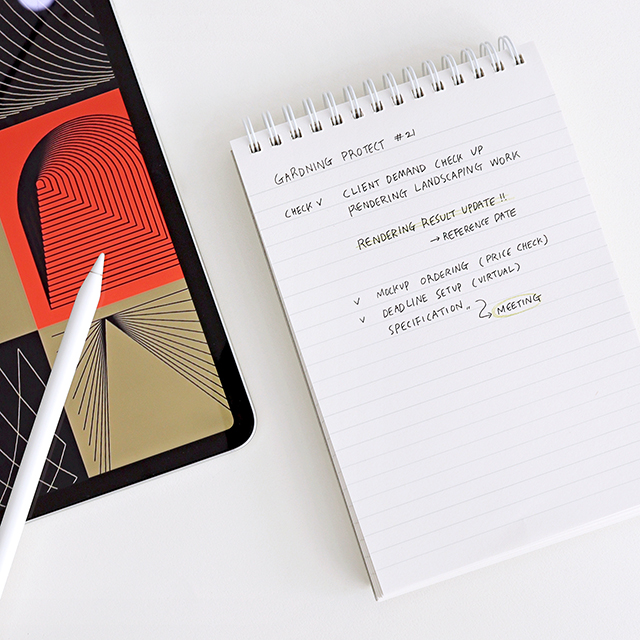 GARDNING PROTECT #21
CHECK ✓ CLIENT DEMAND CHECK UP
RENDERING LANDSCAPING WORK
RENDERING RESULT UPDATE !!
→ REFERENCE DATE
✓ MOCKUP ORDERING (PRICE CHECK)
✓ DEADLINE SETUP (VIRTUAL)
SPECIFICATION.. → MEETING